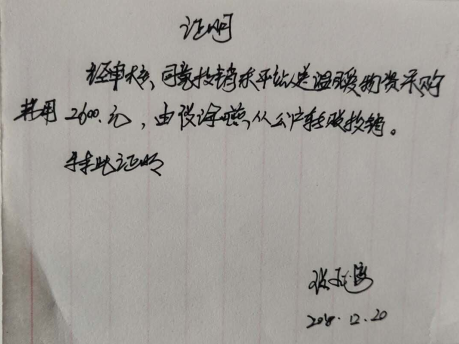 证明
经审核,同意报销永平站送温暖物资采购
费用2600.元,由段,从公户转账报销。
特此证明
20.12.20